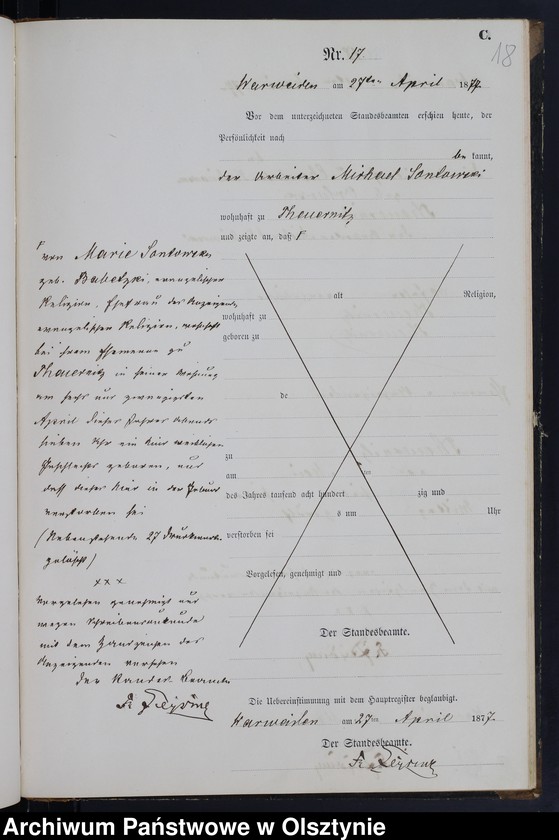 C.
18
Nr. 17
Warweiden am 27ten April 1877
Vor dem unterzeichneten Standesbeamten erschien heute, der
Persönlichkeit nach
be kannt,
der Arbeiter Michael Sontowski
wohnhaft zu Theuernitz
und zeigte an, daß
von Marie Sontowski,
geb. Babetzki, evangelischer
Religion, Ehefrau des Anzeigers,
evangelischer Religion, wohnhaft
bei ihrem Ehemanne zu
Theuernitz in seiner Wohnung
am sechs und zwanzigsten
April dieses Jahres Abends
sieben Uhr ein Kind weiblichen
Geschlechts geboren, und
daß dieses Kind in der Geburt
verstorben sei
(Nebenstehende 27 Druckworte
gelöscht)
xxx
Vorgelesen genehmigt und
wegen Schreibensunkunde
mit dem Handzeichen des
Anzeigenden versehen
Der Standesbeamte
alt Religion,
wohnhaft zu
geboren zu
de
zu
am ten
des Jahres tausend acht hundert zig und
s um Uhr
verstorben sei
Vorgelesen, genehmigt und
Der Standesbeamte.
Die Uebereinstimmung mit dem Hauptregister beglaubigt.
Warweiden am 27ten April 1877
Der Standesbeamte.
Archiwum Państwowe w Olsztynie